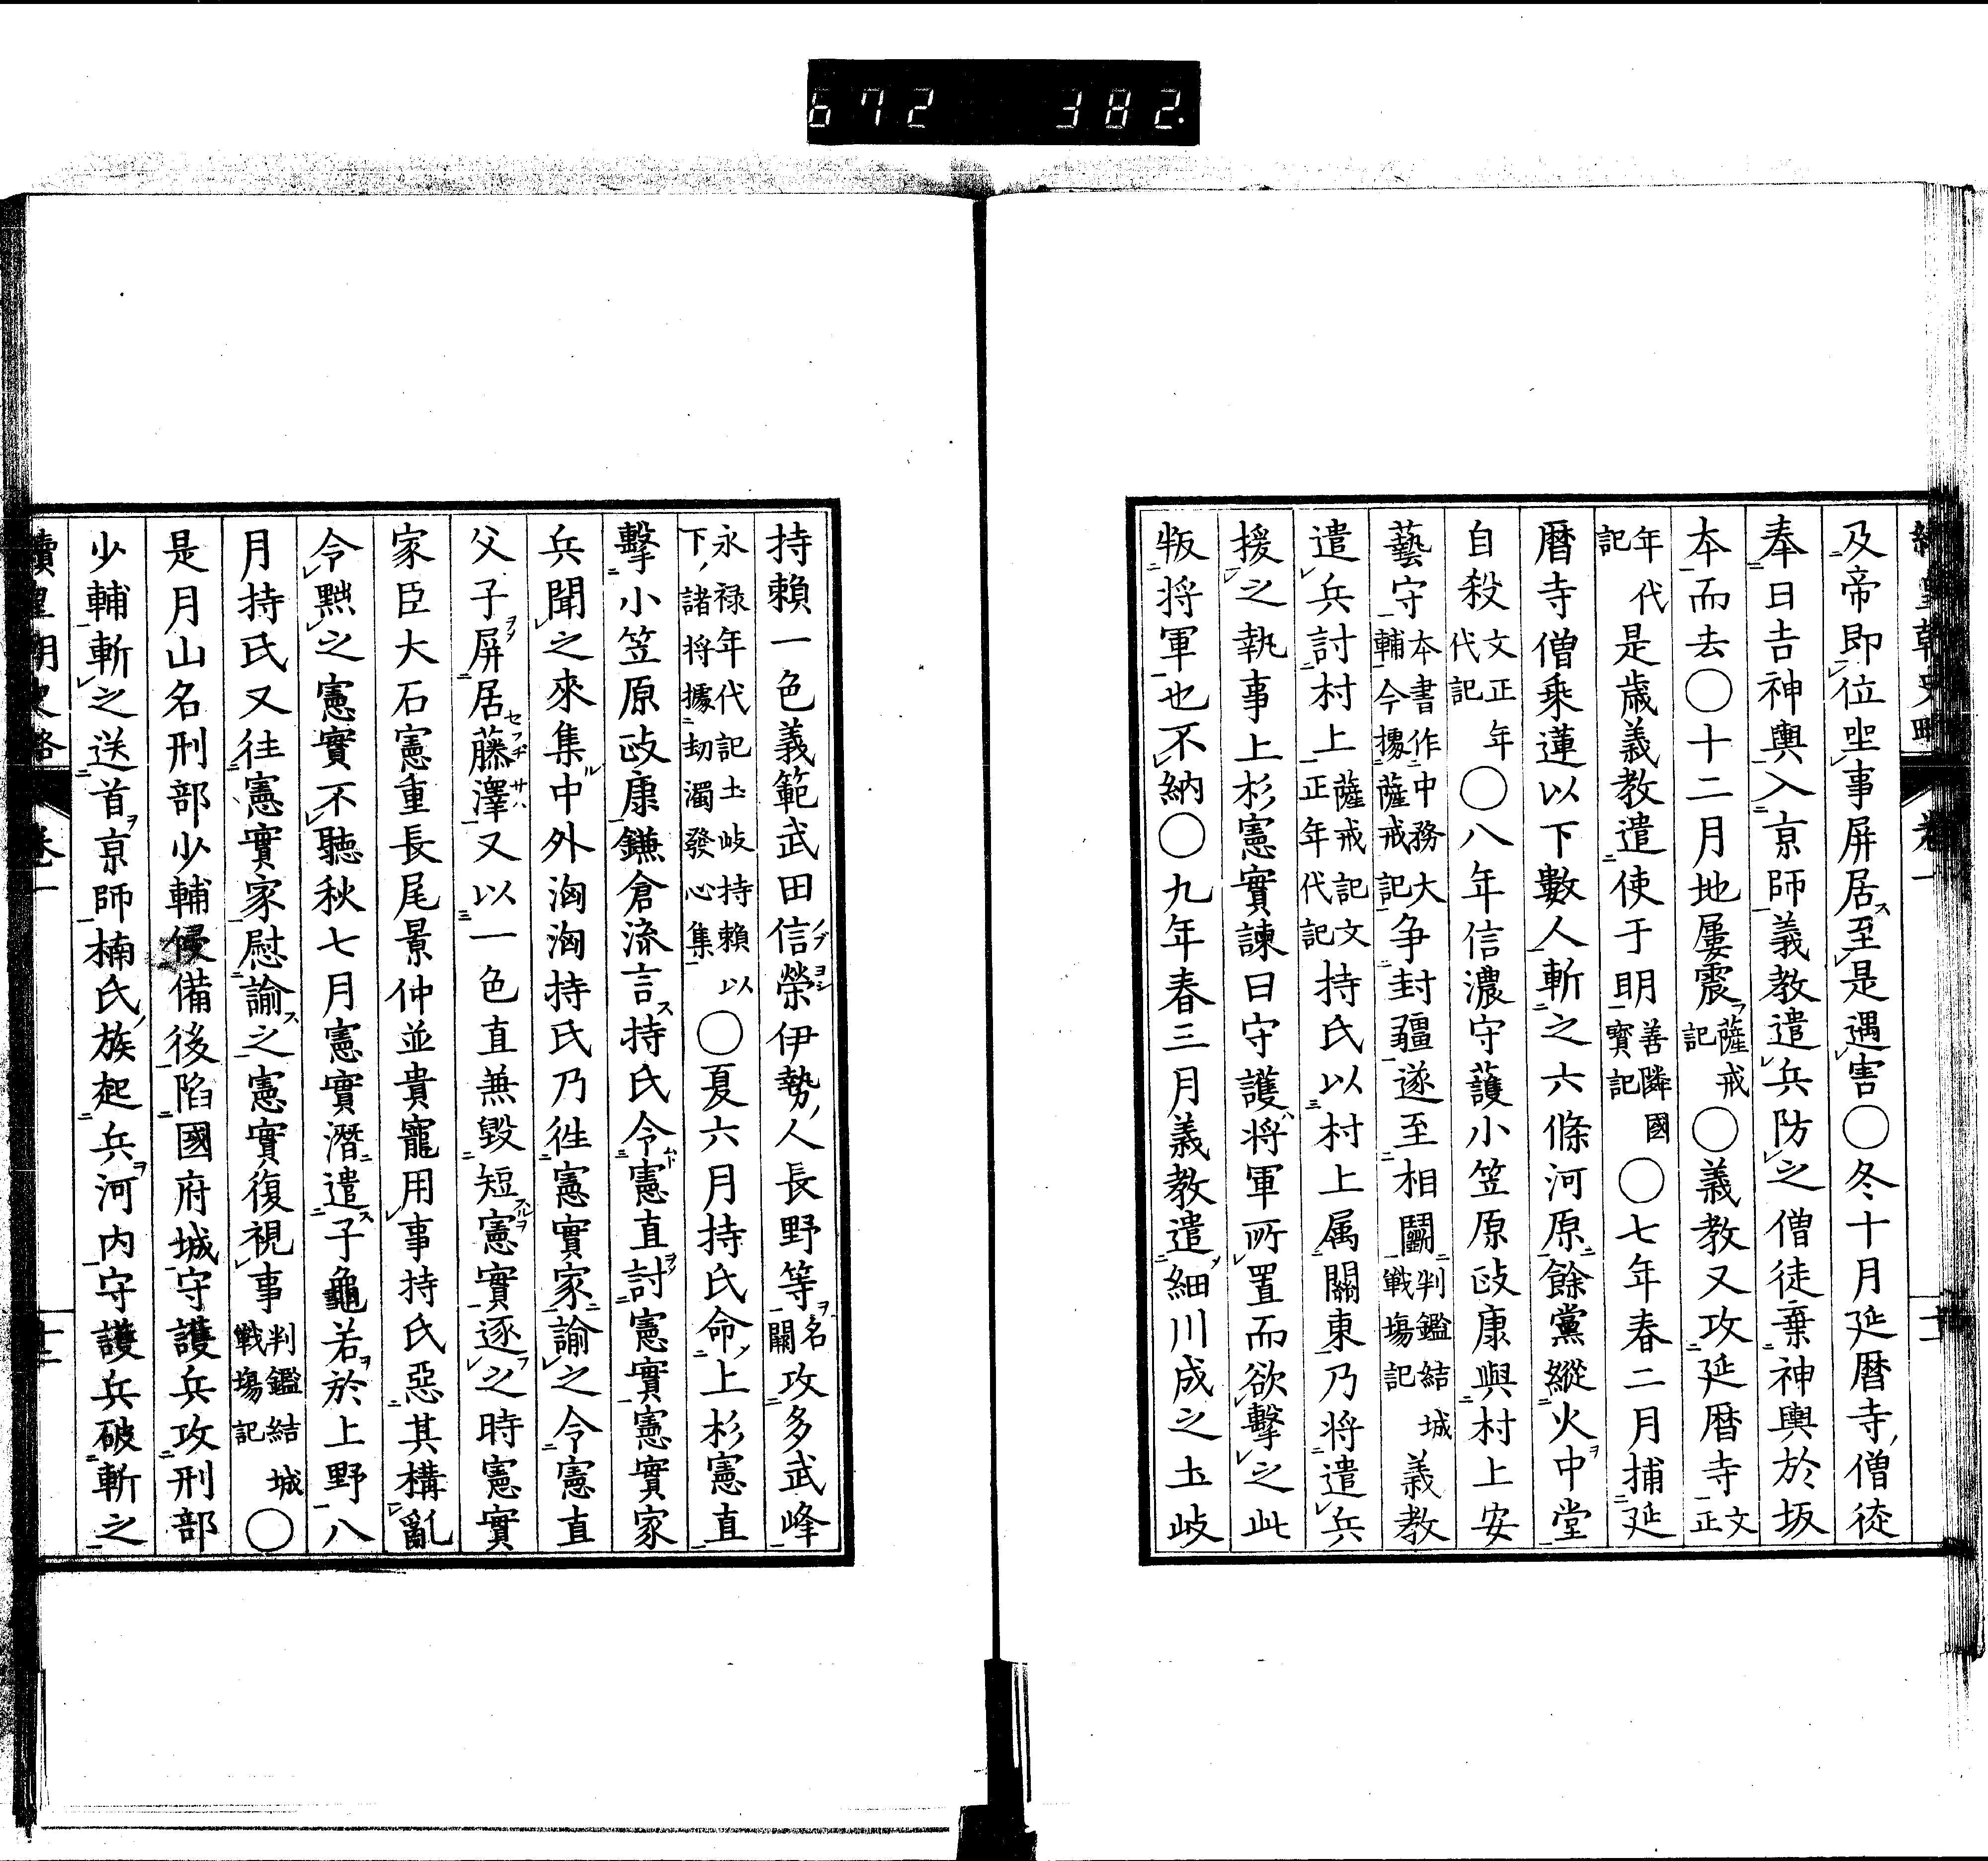 672 382.
續皇朝史略 卷一 十二
及帝即位坐事屏居至是遇害○冬十月延暦寺僧徒
奉日吉神輿入京師義教遣兵防之僧徒棄神輿於坂
本而去○十二月地屢震薩戒記○義教又攻延暦寺文正
年代記是歳義教遣使于明善隣國寳記○七年春二月捕延
暦寺僧乘蓮以下數人斬之六條河原餘黨縱火中堂
自殺文正年代記○八年信濃守護小笠原政康與村上安
藝守本書作中務大輔今據薩戒記争封疆遂至相鬭判鑑結城戰塲記義教
遣兵討村上薩戒記文正年代記持氏以村上属關東乃将遣兵
援之執事上杉憲實諫曰守護将軍所置而欲擊之此
叛将軍也不納○九年春三月義教遣細川成之土岐
持賴一色義範武田信榮伊勢人長野等名闕攻多武峰
永禄年代記土岐持賴以下諸将據刧濁發心集○夏六月持氏命上杉憲直
擊小笠原政康鎌倉流言持氏令憲直討憲實憲實家
兵聞之來集中外洶洶持氏乃徃憲實家諭之令憲直
父子屏居藤澤又以一色直兼毀短憲實逐之時憲實
家臣大石憲重長尾景仲並貴寵用事持氏惡其構亂
令黜之憲實不聽秋七月憲實潛遣子龜若於上野八
月持氏又往憲實家慰諭之憲實復視事判鑑結城戰塲記○
是月山名刑部少輔侵備後陷國府城守護兵攻刑部
少輔斬之送首京師楠氏族起兵河内守護兵破斬之
續皇朝史略 卷一 十二